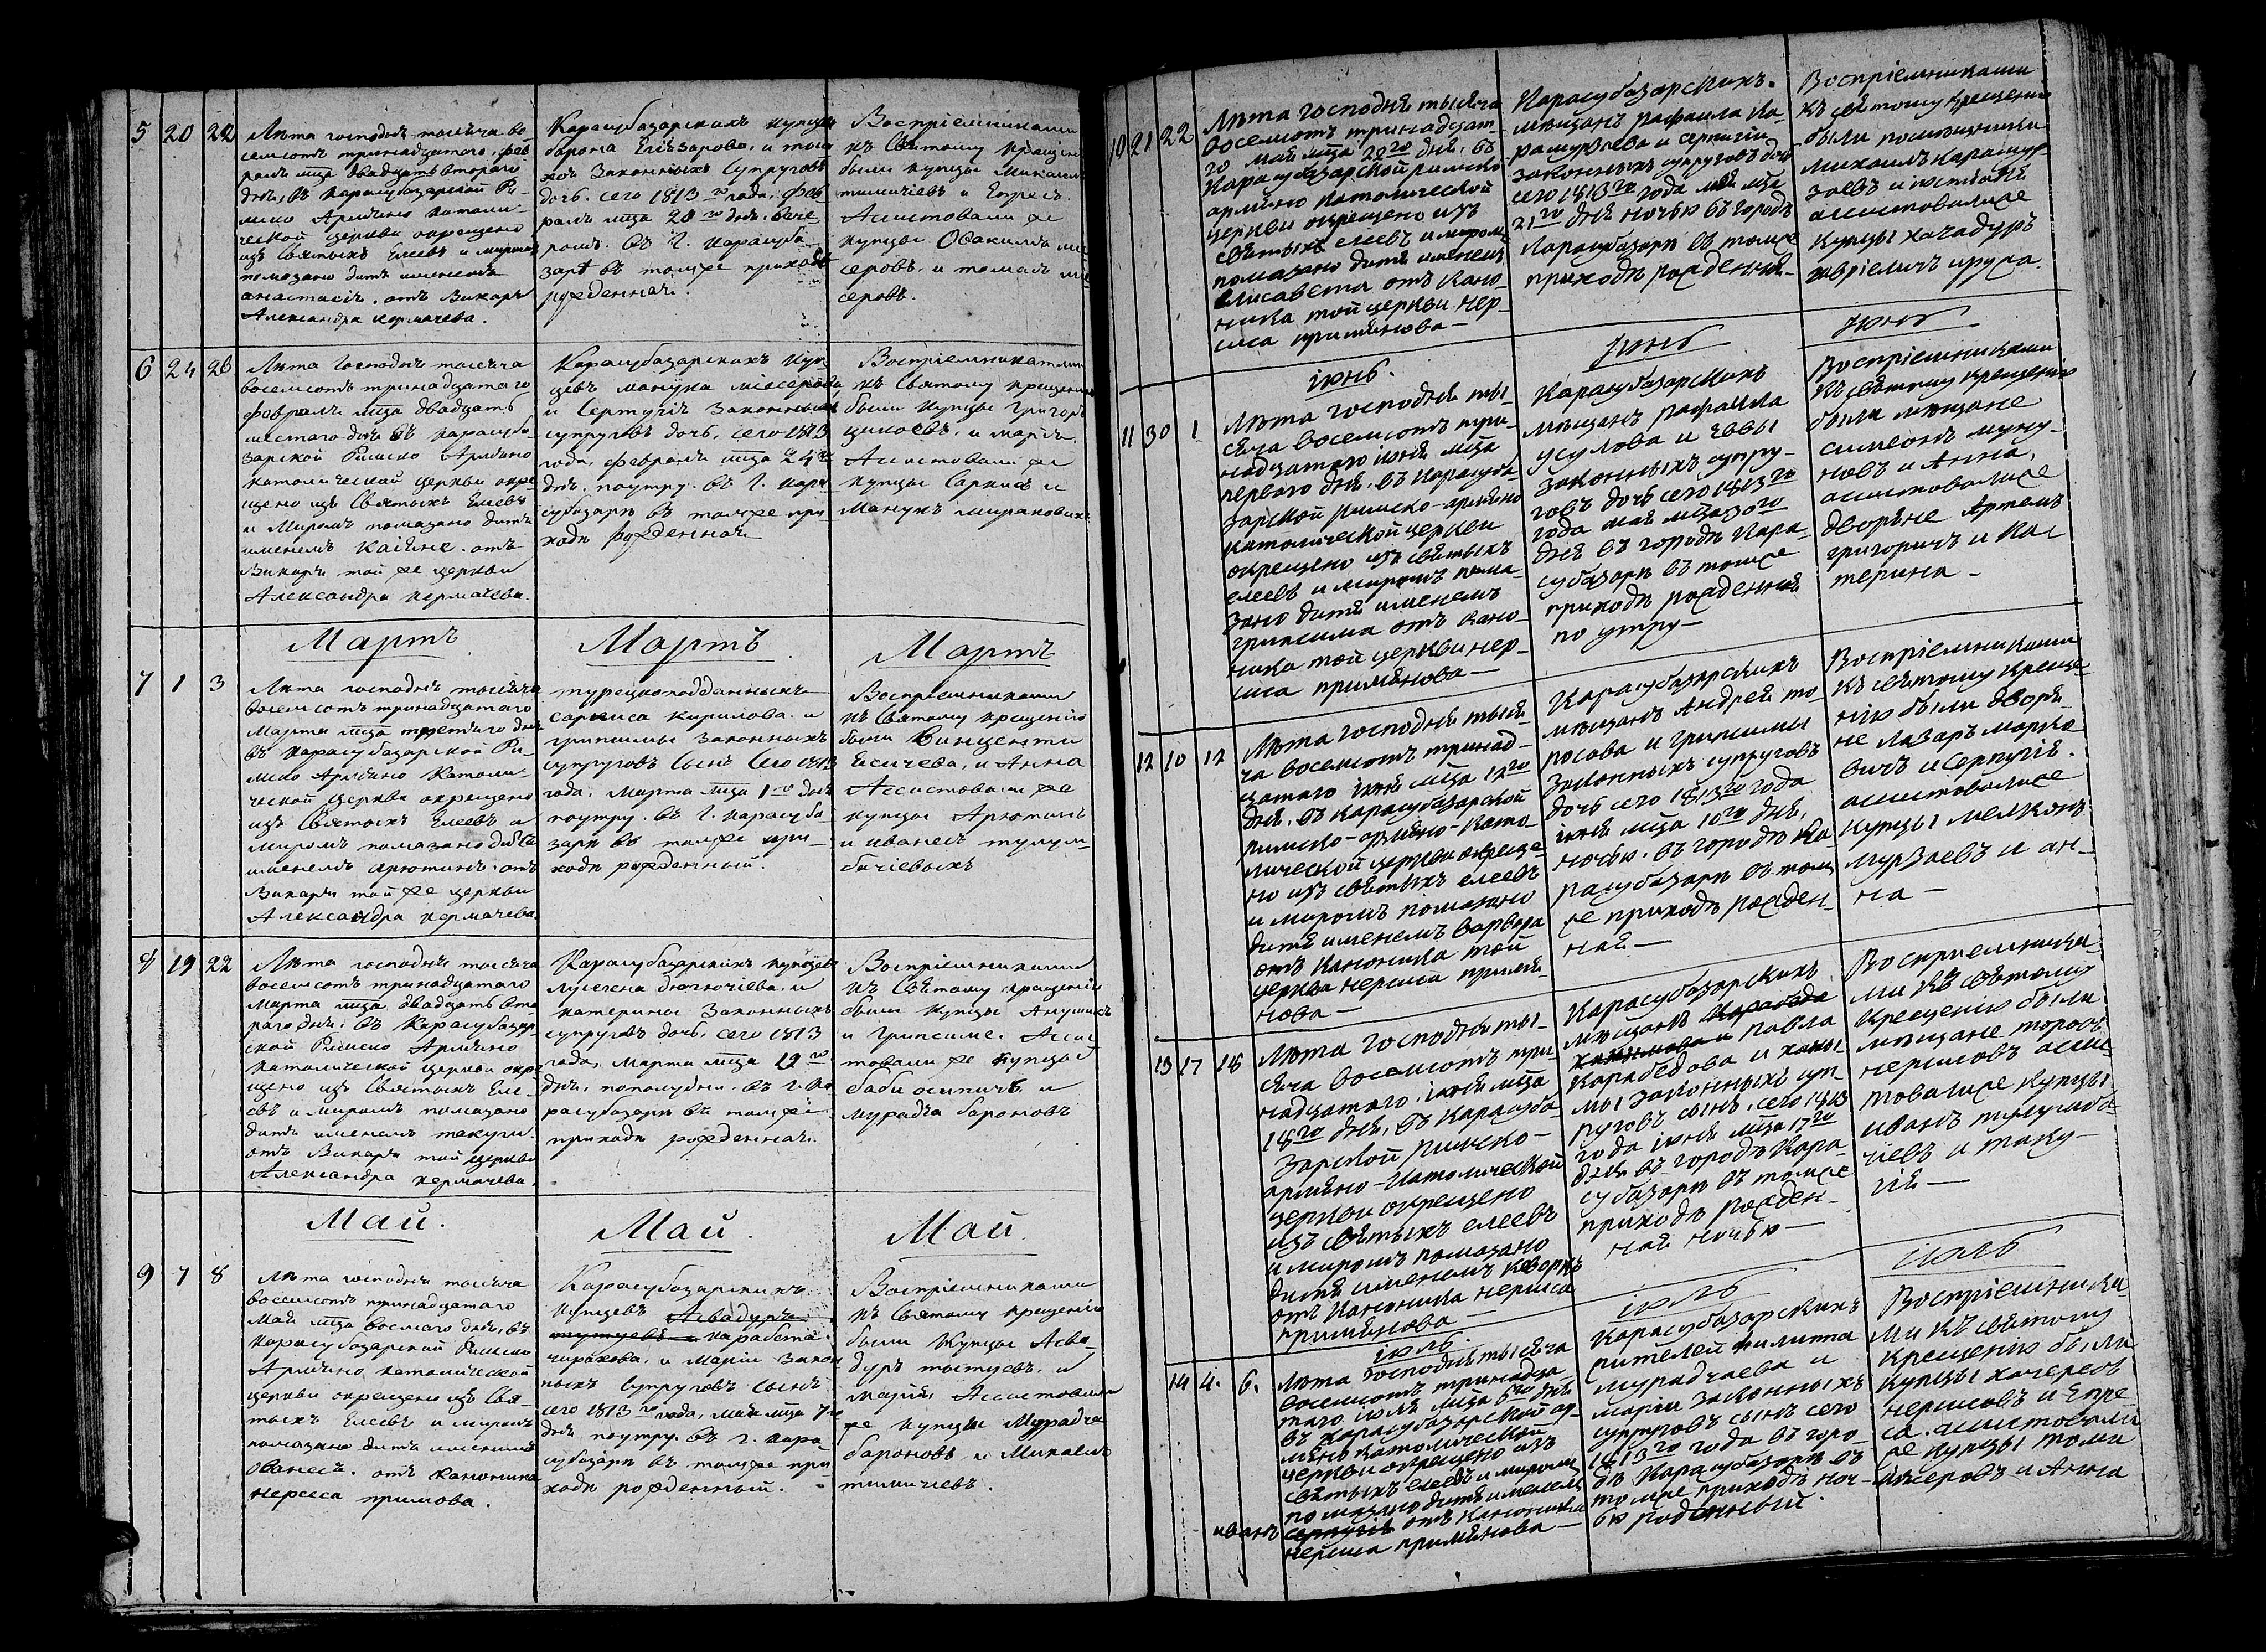 5 20 22
Лѣта господня тысяча во
семсотъ тринадцатаго, фев
раля мца двадцать втораго
дня, въ Карасубазарской Ри
мско Армѣно Католи
ческой церкви окрещено
изъ Святыхъ Елеевъ и миромъ
помазано дитя именемъ
анастасія. отъ Викарія
Александра Кермачева.
Карасубазарскихъ купцевъ
барона Еліазарова, и
Законныхъ Супруговъ
дочь. сего 1813го года, фев
раля мца 20го дня. вече
ромъ. въ Г. Карасуба
зарѣ въ томже приходѣ
рожденная.
Воспріемниками
къ Святому крещенію
были купцы Микаелъ
тиличіевъ и Епресъ.
Асистовали же
купцы Овакимъ
серовъ. и томасъ
серовъ.
6 24 26
Лѣта Господня тысяча
восемсотъ тринадцатаго
февраля мца двадцать
шестаго дня въ Карасуба
зарской Римско Армѣно
католической церкви окре
щено изъ Святыхъ Елеевъ
и Миромъ помазано дитя
именемъ Каіяне. отъ
Викарія той же церкви
Александра кермачева.
Карасубазарскихъ куп
цевъ манука місерова
и Сертугіи Законныхъ
супруговъ дочь, сего 1813
года, февраля мца 24го
дня, поутру. въ Г. Кара
субазарѣ въ томже при
ходѣ рожденная
Воспріемниками
къ Святому крещенію
были купцы Григоръ
цикоевъ, и марія.
Асистовали же
купцы Саркисъ и
Манукъ мираковичъ
Мартъ
Мартъ
Мартъ
7 1 3
Лѣта господня тысяча
восемсотъ тринадцатаго
Марта мца третяго дня
въ Карасубазарской Ри
мско Армѣно Католи
ческой церкви окрещено
изъ Святыхъ Елеевъ и
миромъ помазано дитя
именемъ арютинъ. отъ
Викарія той же церкви
Александра кермачева.
турецкоподданныхъ
саркиса Кирилова. и
грипсимы Законныхъ
супруговъ Сынъ Сего 1813
года, Марта мца 1го дня
поутру. въ Г. Карасуба
зарѣ въ томже при
ходѣ рожденный.
Воспріемниками
къ Святому крещенію
были Винценти
Есичева, и Анна
Ассистовали же
купцы Арютинъ
и иванесъ тулум
бачіевыхъ
8 19 22
Лѣта господня тысяча
восемсотъ тринадцатаго
Марта мца двадцать вто
раго дня. въ Карасубазар
ской Римско Армѣно
католической церкви окре
щено изъ Святыхъ Еле
евъ и миромъ помазано
дитя именемъ такуги.
отъ Викарія той церкви
Александра кермачева.
Карасубазарскихъ купцевъ
лусегена дюгючіева. и
катерины Законныхъ
супруговъ дочь. сего 1813
года, Марта мца 19го
дня. пополудни. въ Г. Ка
расубазарѣ въ томже
приходѣ рожденная.
Воспріемниками
къ Святому крещенію
были купцы Анушъ
и Грипсиме. Асис
товали же купцы
баби осипичъ и
мурадча бароновъ
Май.
Май.
Май.
9 7 8
Лѣта господня тысяча
восемсотъ тринадцатаго
Мая мца восмаго дня, въ
Карасубазарской Римско
Армѣно католической
церкви окрещено изъ Свя
тыхъ Елеевъ и миромъ
помазано дитя именемъ
Ованесъ. отъ каноника
Нерсеса примова.
Карасубазарскихъ
купцевъ Асвадуръ
карабета
чиракова, и Маріи Закон
ныхъ Супруговъ Сынъ
сего 1813го года, Мая мца 7го
дня поутру. въ г. Кара
субазарѣ въ томже при
ходѣ рожденный.
Воспріемниками
къ Святому крещенію
были купцы Асва
дуръ тютуевъ, и
марія, Ассистовали
же купцы Мурадча
бароновъ, и Микаелъ
тиличіевъ.
10 21 22
Лѣта господня тысяча
восемсотъ тринадцат-
го мая мца 22го дня, въ
Карасубазарской римско
армяно католической
церкви окрещено изъ
святыхъ елеевъ и миромъ
помазано дитя именемъ
елисавета отъ Кано-
ника той церкви Нер-
сиса примянова-
Карасубазарскихъ
мѣщанъ рафаила Ка-
рамурзаева и серпигіи
законныхъ супруговъ дочь
сего 1813го года мая мца
21го дня ночью въ городѣ
Карасубазарѣ въ томже
приходѣ рожденная-
Воспріемниками
къ святому крещенію
были помѣщики
михаилъ Карамур-
заевъ и
асистовали же
купцы хачадуръ
гавріеличъ и руза.
іюнь.
іюнь
іюнь
11 30 1
Лѣта господня ты-
сяча восемсотъ три-
надцатаго іюня мца
перваго дня, въ Карасуба
зарской римско-армяно
католической церкви
окрещено изъ святыхъ
елеевъ и миромъ пома-
зано дитя именемъ
грипсима отъ Кано-
ника той церкви нер-
сиса примянова-
Карасубазарскихъ
мѣщанъ рафаила
усулова и Еввы
законныхъ супру-
говъ дочь сего 1813го
года мая мца 30го
дня въ городѣ Кара-
субазарѣ въ томже
приходѣ рожденная
по утру-
Воспріемниками
къ святому крещенію
были мѣщане
симеонъ муну-
новъ и Анна,
асистовали же
дворяне Артемъ
григоричъ и Ка-
терина-
12 10 12
Лѣта господня тыся
ча восемсотъ тринад-
цатаго іюня мца 12го
дня, въ Карасубазарской
римско-армяно-като-
лической церкви окреще-
но изъ святыхъ елеевъ
и миромъ помазано
дитя именемъ варвара
отъ Каноника той
церкви нерсиса примя-
нова-
Карасубазарскихъ
мѣщанъ Андрей то-
росова и грипсимы
Законныхъ супруговъ
дочь сего 1813го года
іюня мца 10го дня,
ночью. въ городѣ Ка-
расубазарѣ въ том
же приходѣ рожден-
ная-
Воспріемниками
къ святому креще-
нію были дворя-
не Лазаръ марко
вичъ и Серпугія.
асистовали же
купцы мелконъ
мурзаевъ и ан-
на-
13 17 18
Лѣта господня ты-
сяча восемсотъ три-
надцатаго, іюня мца
18го дня, въ Карасуба-
зарской римско-
армяно-католической
церкви окрещено
изъ святыхъ елеевъ
и миромъ помазано
дитя именемъ Кеворкъ
отъ Каноника нерсиса
примянова-
Карасубазарскихъ
мѣщанъ
павла
Карабедова и ханы-
мы законныхъ суп-
руговъ сынъ, сего 1813
года іюня мца 17го
дня въ городѣ Кара-
субазарѣ въ томже
приходѣ рожден-
ная ночью-
Воспріемника-
ми къ святому
крещенію были
мѣщане торосъ
нерсисовъ асси-
товали же купцы
иванъ тулумба-
чіевъ и таку-
гія-
іюль.
іюль
іюль
14 4. 6.
Лѣта господня тысяча
восемсотъ тринадца
таго іюля мца 6го дня
въ Карасубазарской ар-
мяно католической
церкви окрещено изъ
святыхъ елеевъ и миромъ
помазано дитя именемъ
иванъ серпугія отъ Каноника
нерсиса примянова-
Карасубазарскихъ
жителей филиппа
мурадчаева и
марги законныхъ
супруговъ сынъ сего
1813го года въ горо-
дѣ Карасубазарѣ въ
томже приходѣ ноч-
ью рожденный.
Воспріемника-
ми къ святому
крещенію были
купцы хачересъ
нерсисовъ и Епре
са. асистовали
же купцы тома
місеровъ и Анна